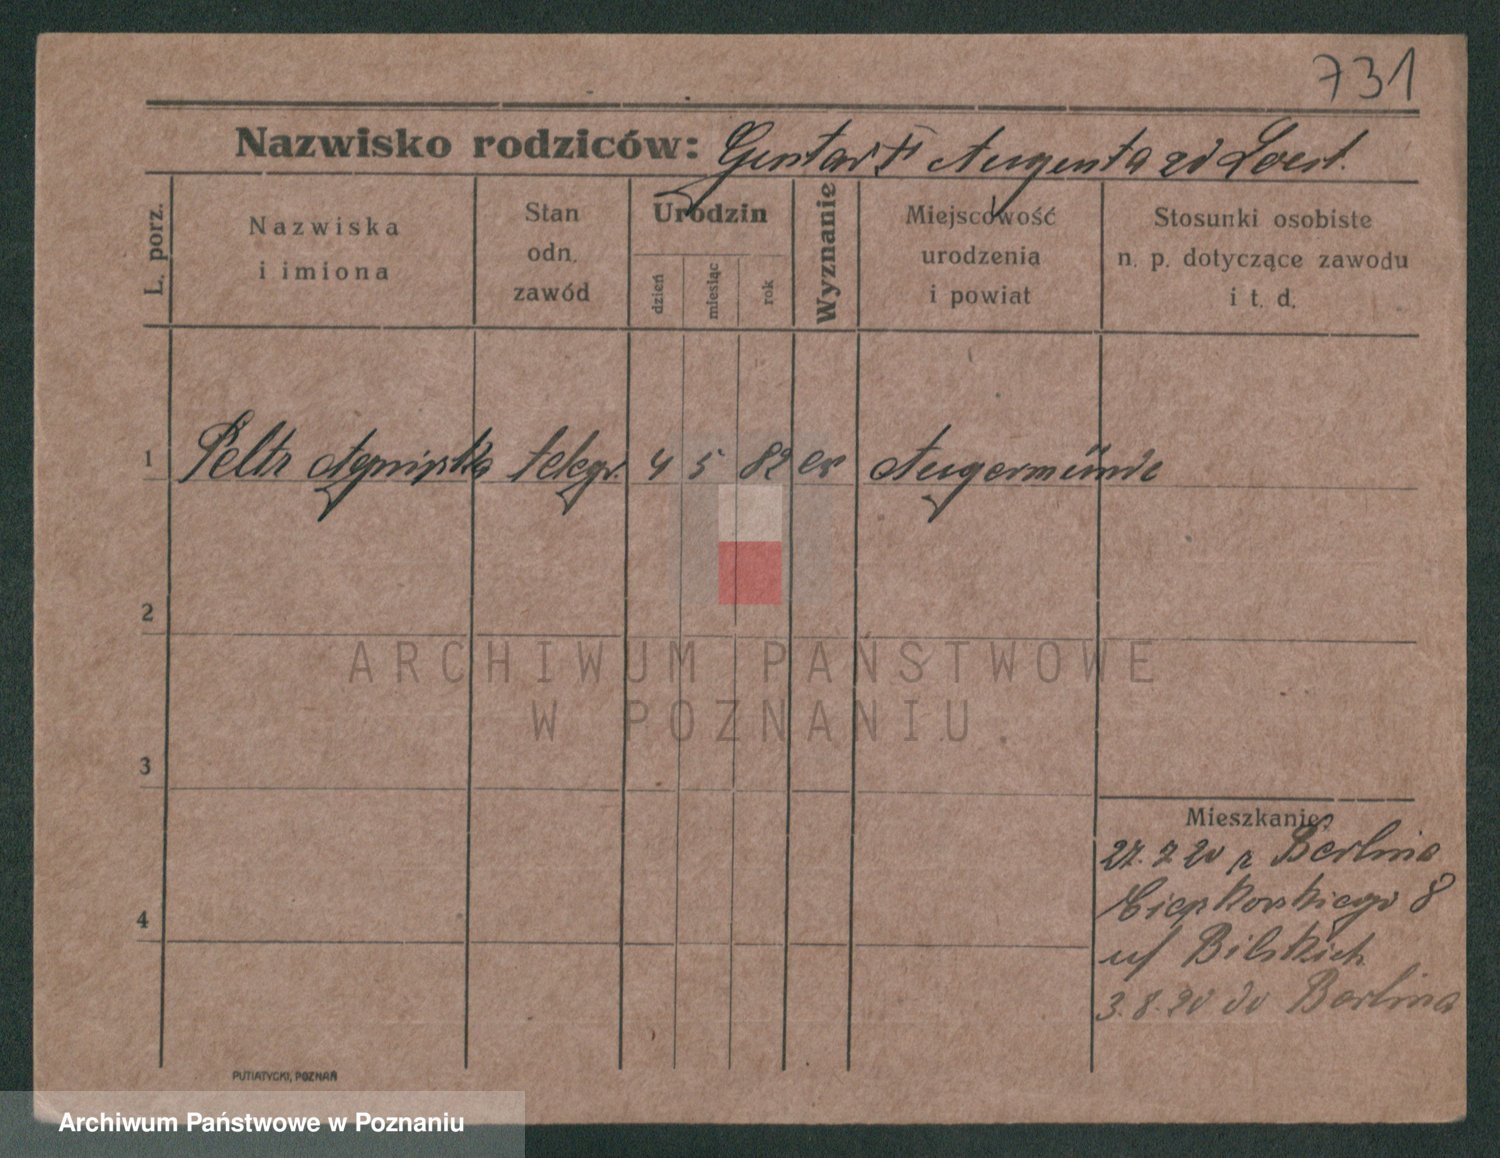 731
Nazwisko rodziców: Gustaw † Augusta zd Loest.
L. porz.
Nazwiska
i imiona
Stan
odn.
zawód
Urodzin
dzień
miesiąc
rok
Wyznanie
Miejscowość
urodzenia
i powiat
Stosunki osobiste
n. p. dotyczące zawodu
i t. d.
1 Peltz Agnieszka telegr. 4 5 82 ew Angermünde
2
ARCHIWUM PAŃSTWOWE
W POZNANIU
3
Mieszkanie?
27.7 20 z Berlina
8
u/ Bilskich
4
3.8.20 do Berlina
PUTIATYCKI, POZNAŃ
Archiwum Państwowe w Poznaniu